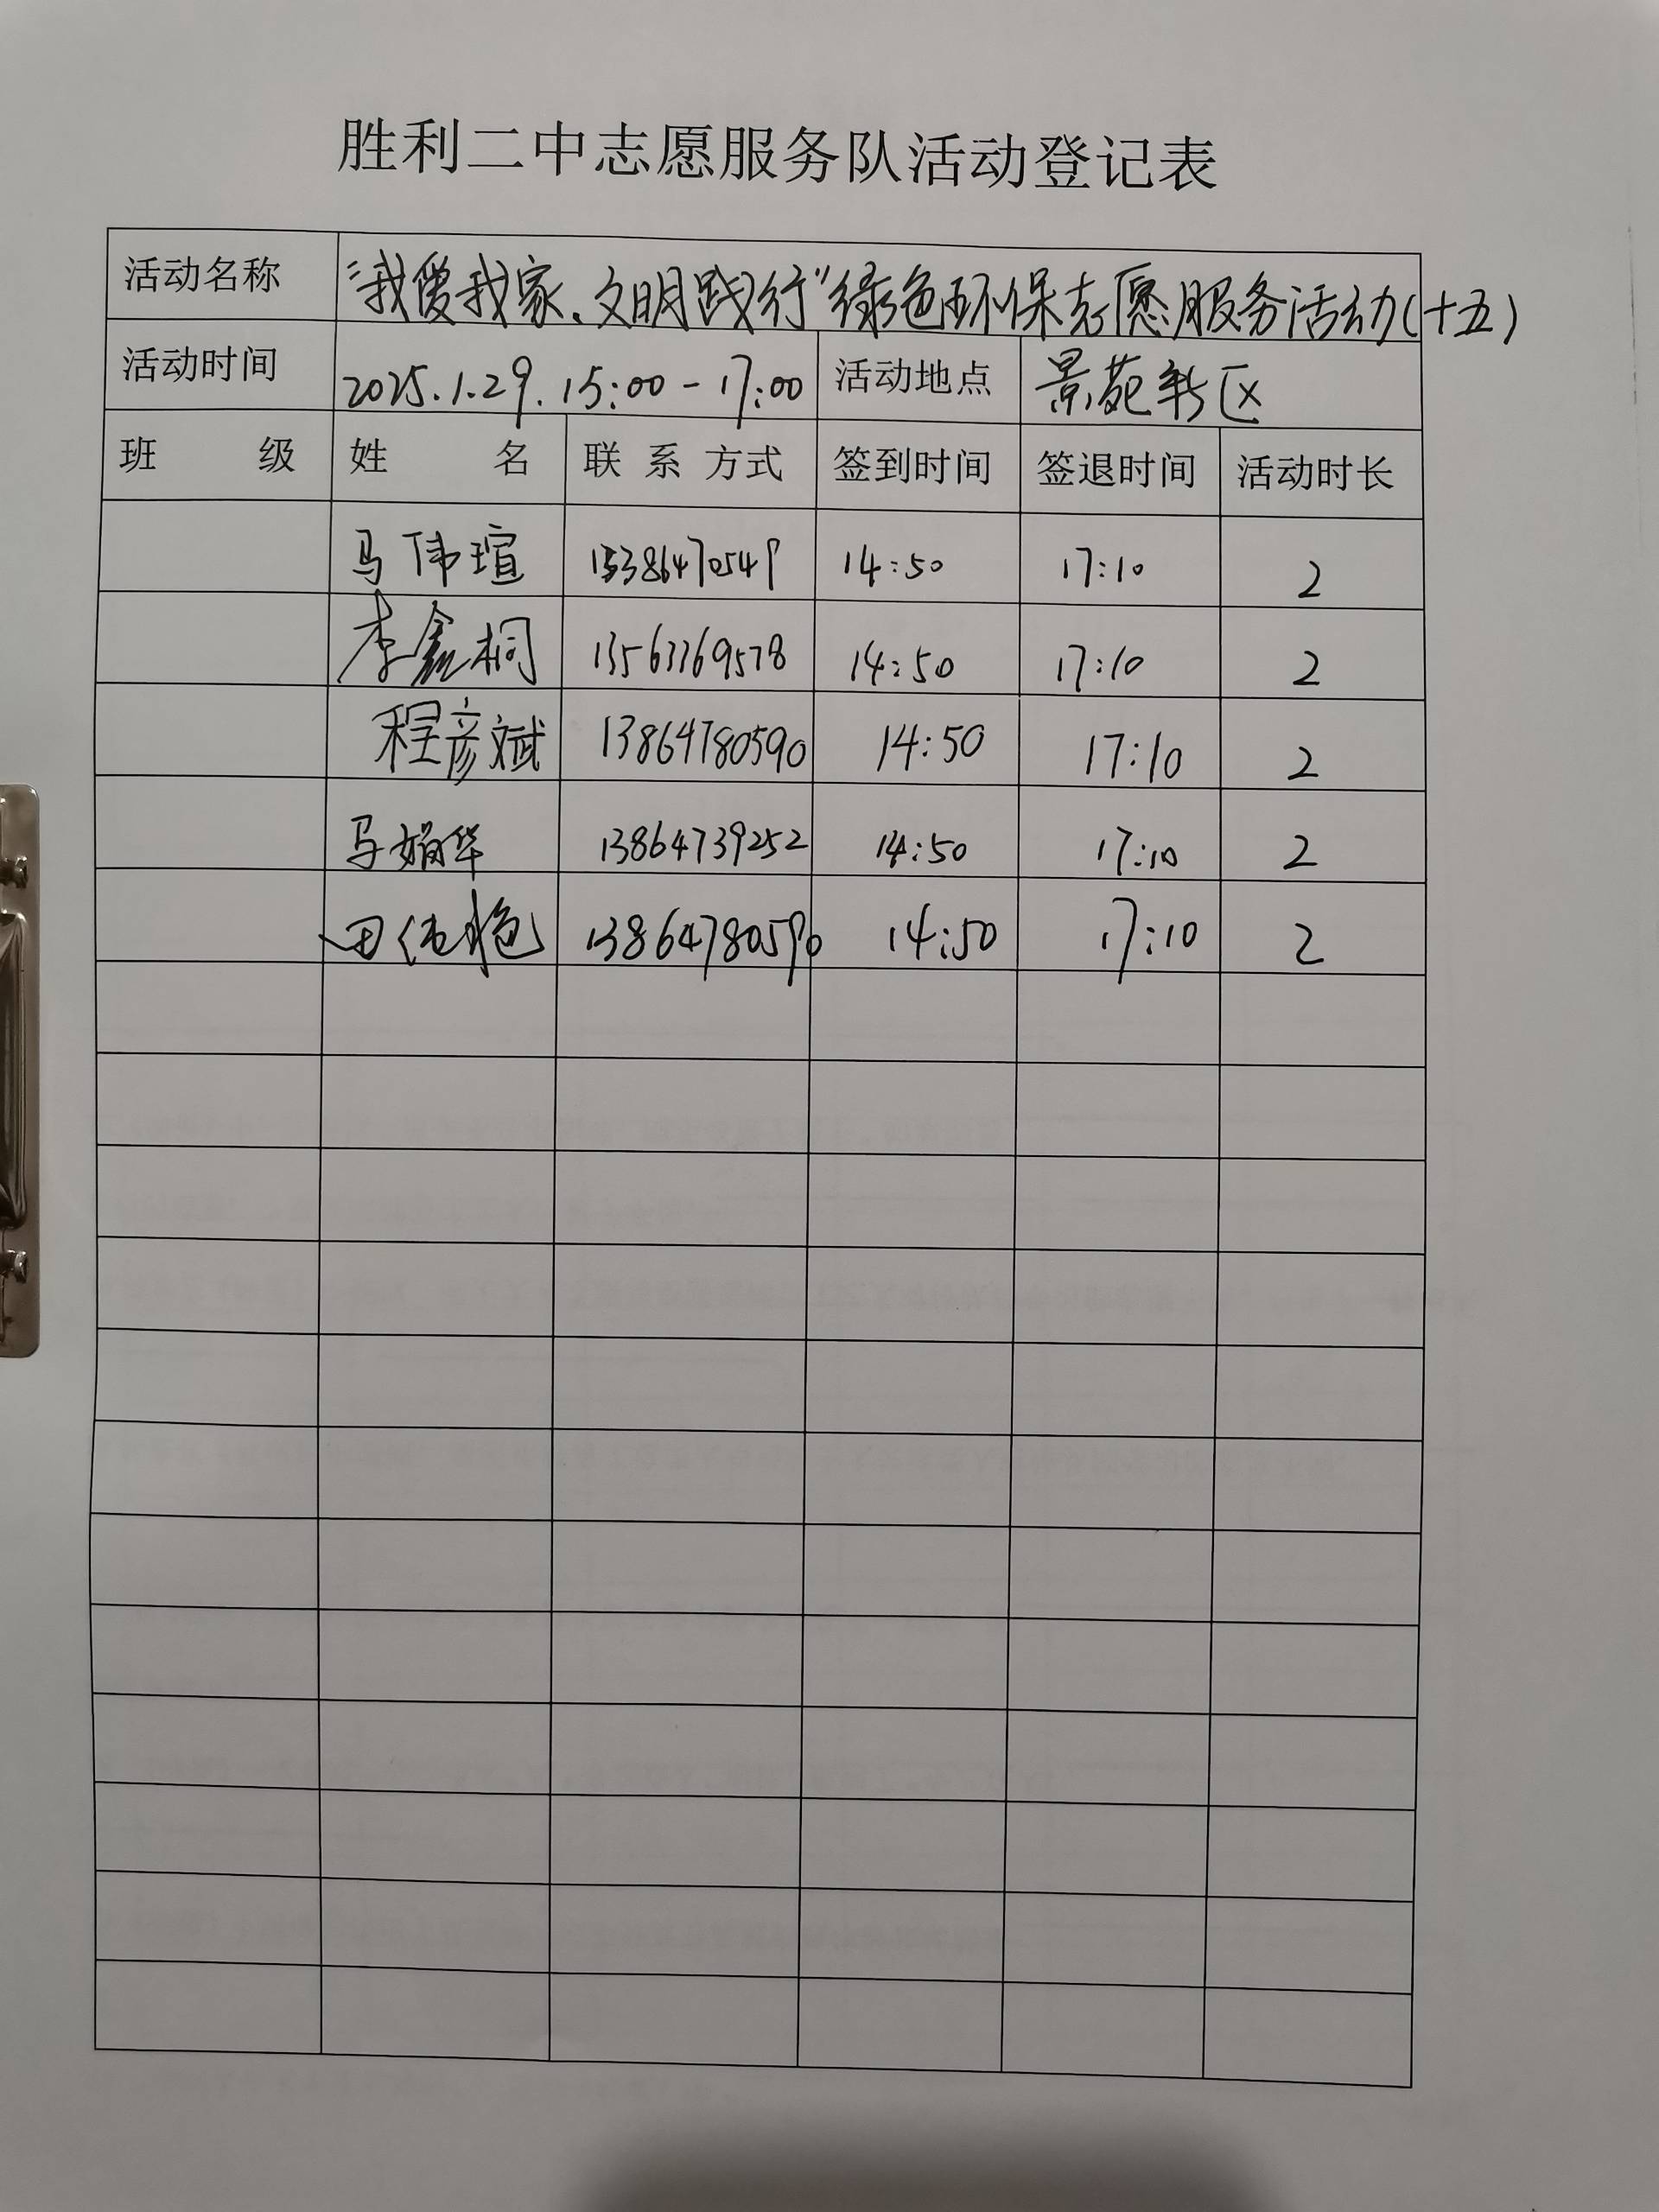 胜利二中志愿服务队活动登记表
活动名称 “我爱我家、文明践行”绿色环保志愿服务活动(十五)
活动时间 2025.1.29. 15:00-17:00 活动地点 景苑新区
班 级 姓 名 联系方式 签到时间 签退时间 活动时长
马伟瑄 14:50 17:10 2
李鑫桐 14:50 17:10 2
程彦斌 13864780590 14:50 17:10 2
马娟华 13864739252 14:50 17:10 2
田 13864780590 14:50 17:10 2